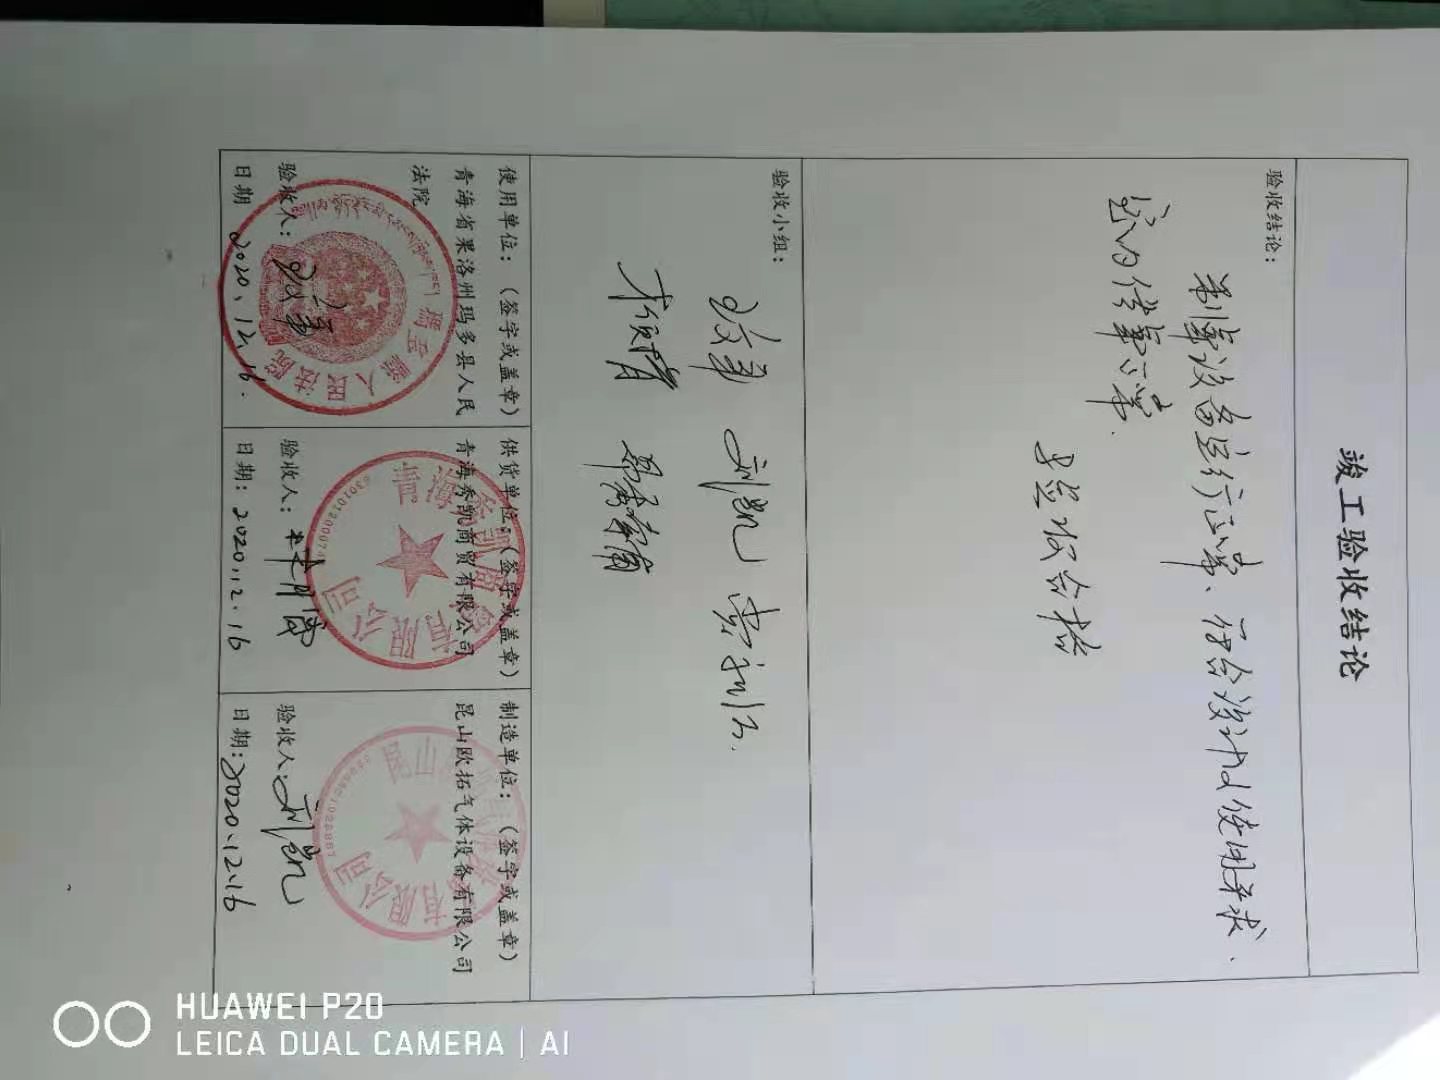 竣工验收结论
验收结论：
制氧设备运行正常、符合设计以使用要求.
室内供氧正常.
验收合格
验收小组：
王文军 刘凯
使用单位：（签字或盖章）
青海省果洛州玛多县人民
法院
瑪多縣人民法院
验收人：王文军
日期 2020.12.16.
供货单位：（签字或盖章）
青海秀凯商贸有限公司
青海秀凯商贸有限公司
验收人：
日期：2020.12.16
制造单位：（签字或盖章）
昆山欧拓气体设备有限公司
验收人：刘凯
日期：2020.12.16
HUAWEI P20
LEICA DUAL CAMERA | AI